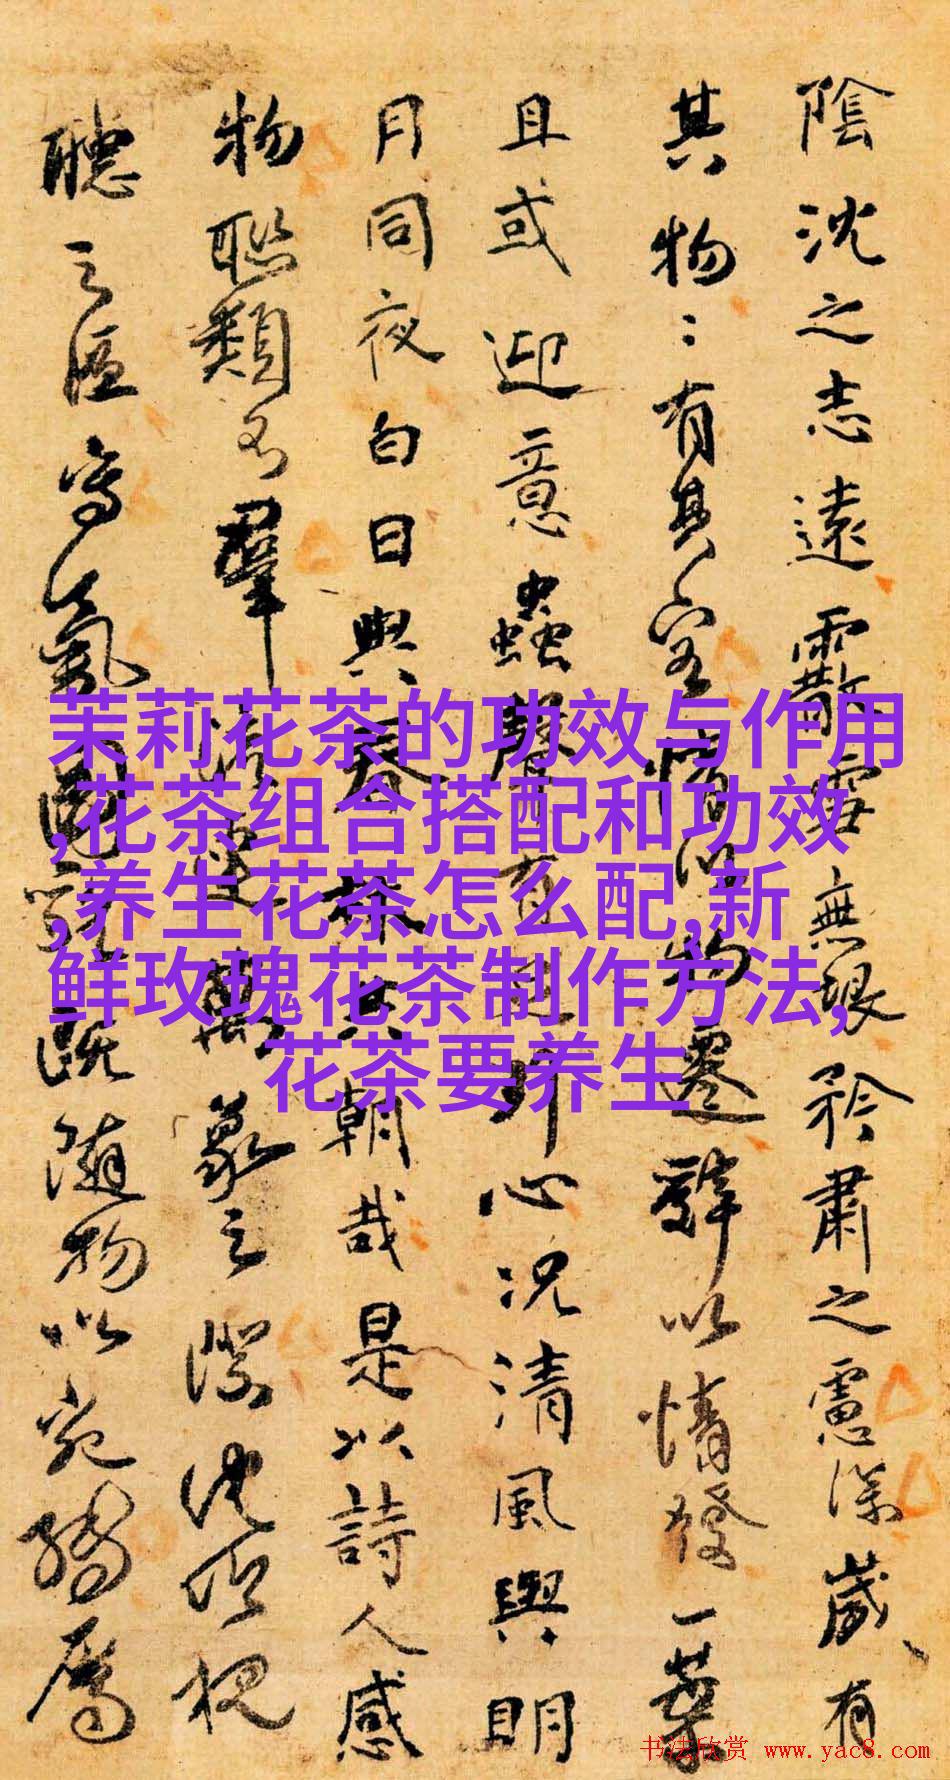 陰沈之志遠霰雪無垠矜肅之慮深歲有
其物：有其容情以物遷辭以情發一葉
且或迎意蟲聲有足引心況清風與明
月同夜白日與春林共朝哉是以詩人感
物聯類不窮流連萬象之際沈吟視
聽之區寫氣圖貌既隨物以宛轉屬
茉莉花茶的功效与作用
,花茶组合搭配和功效
,养生花茶怎么配,新
鲜玫瑰花茶制作方法,
花茶要养生
书法欣赏 www.yac8.com